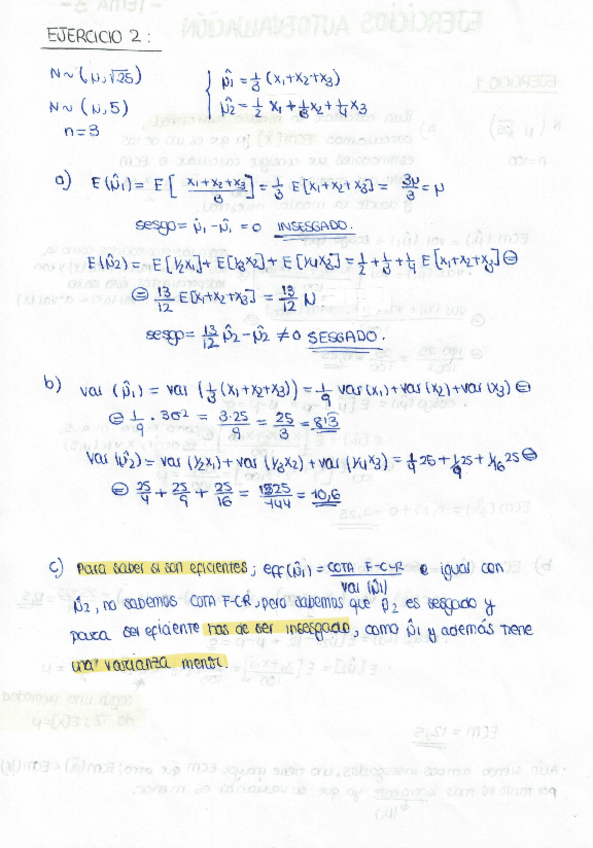 EJERCICIO 2:
N~(μ,√25)
N~(μ,5)
n=3
μ̂1 = 1/3 (x1+x2+x3)
μ̂2 = 1/2 x1 + 1/3 x2 + 1/4 x3
a) E(μ̂1) = E[ (x1+x2+x3)/3 ] = 1/3 E[x1+x2+x3] = 3μ/3 = μ
sesgo = μ̂1 - μ̂1 = 0 INSESGADO.
E(μ̂2) = E[1/2x1] + E[1/3x2] + E[1/4x3] = 1/2 + 1/3 + 1/4 E[x1+x2+x3] =
= 13/12 E[x1+x2+x3] = 13/12 μ
sesgo = 13/12 μ̂2 - μ̂2 ≠ 0 SESGADO.
b) Var (μ̂1) = var (1/3 (x1+x2+x3)) = 1/9 var(x1) + var(x2) + var(x3) =
= 1/9 · 3σ² = 3·25/9 = 25/3 = 8'3
Var (μ̂2) = var (1/2x1) + var (1/3x2) + var (1/4x3) = 1/4 25 + 1/9 25 + 1/16 25 =
= 25/4 + 25/9 + 25/16 = 1525/144 = 10,6
c) Para saber si son eficientes; eff(μ̂1) = COTA F-C-R / Var (μ̂1) e igual con
μ̂2, no sabemos COTA F-CR, pero sabemos que μ̂2 es sesgado y
para ser eficiente has de ser insesgado, como μ̂1 y además tiene
una varianza menor.